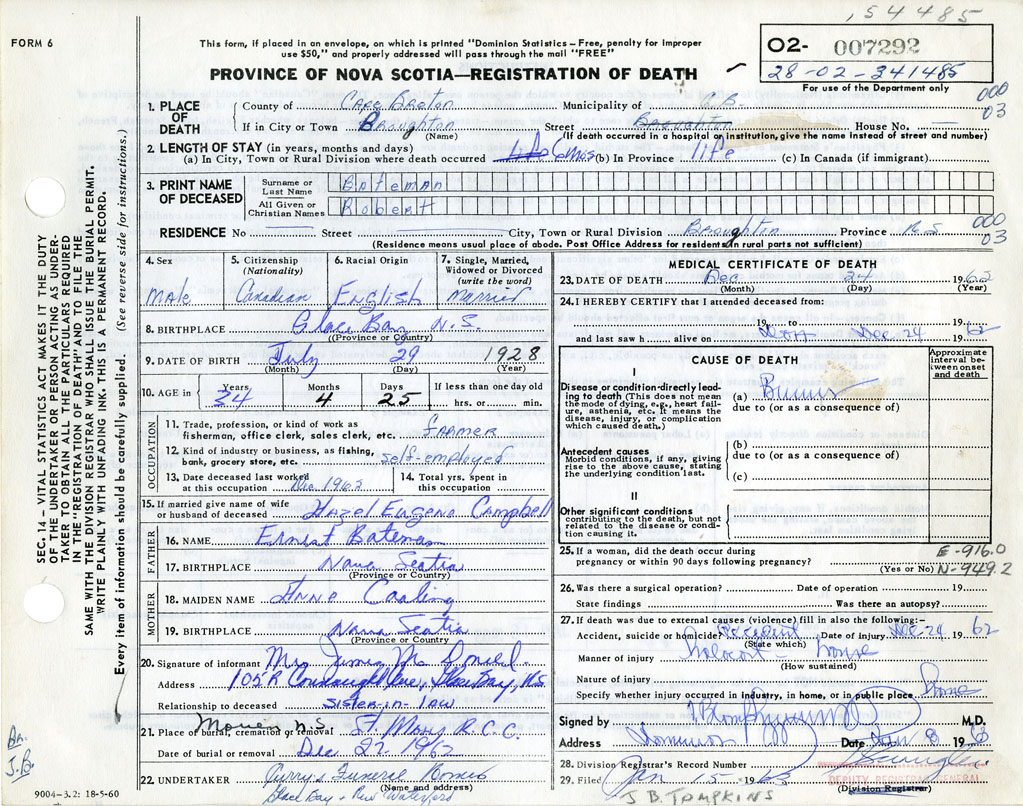 154485
FORM 6
This form, if placed in an envelope, on which is printed "Dominion Statistics – Free, penalty for improper
use $50," and properly addressed will pass through the mail "FREE"
O2- 007292
28-02-341485
For use of the Department only
PROVINCE OF NOVA SCOTIA—REGISTRATION OF DEATH
000
03
1. PLACE OF DEATH
County of Cape Breton Municipality of C.B.
If in City or Town Broughton Street Broughton House No. —
(Name) (If death occurred in a hospital or institution, give the name instead of street and number)
2. LENGTH OF STAY (in years, months and days)
(a) In City, Town or Rural Division where death occurred 6 mos (b) In Province life (c) In Canada (if immigrant)
3. PRINT NAME OF DECEASED
Surname or Last Name Bateman
All Given or Christian Names Robert
RESIDENCE No Street City, Town or Rural Division Broughton Province N S
000
03
(Residence means usual place of abode. Post Office Address for residents in rural parts not sufficient)
SEC. 14 – VITAL STATISTICS ACT MAKES IT THE DUTY
OF THE UNDERTAKER OR PERSON ACTING AS UNDER-
TAKER TO OBTAIN ALL THE PARTICULARS REQUIRED
IN THE "REGISTRATION OF DEATH" AND TO FILE THE
SAME WITH THE DIVISION REGISTRAR WHO SHALL ISSUE THE BURIAL PERMIT.
WRITE PLAINLY WITH UNFADING INK. THIS IS A PERMANENT RECORD.
Every item of information should be carefully supplied. (See reverse side for instructions.)
4. Sex
Male
5. Citizenship
(Nationality)
Canadian
6. Racial Origin
English
7. Single, Married, Widowed or Divorced
(write the word)
Married
8. BIRTHPLACE Glace Bay N.S.
(Province or Country)
9. DATE OF BIRTH July 29 1928
(Month) (Day) (Year)
10. AGE in Years 34 Months 4 Days 25 If less than one day old hrs. or min.
OCCUPATION
11. Trade, profession, or kind of work as
fisherman, office clerk, sales clerk, etc. Farmer
12. Kind of industry or business, as fishing,
bank, grocery store, etc. self-employed
13. Date deceased last worked
at this occupation 1962
14. Total yrs. spent in
this occupation
15. If married give name of wife
or husband of deceased Hazel Eugena Campbell
FATHER
16. NAME Ernest Bateman
17. BIRTHPLACE Nova Scotia
(Province or Country)
MOTHER
18. MAIDEN NAME Anne
19. BIRTHPLACE Nova Scotia
(Province or Country)
20. Signature of informant Mrs
Address 105R Connaught Ave, Glace Bay, N.S.
Relationship to deceased sister-in-law
21. Place of burial, cremation or removal N.S. St. Marys R.C.C.
Date of burial or removal Dec 22 1962
22. UNDERTAKER Curry's Funeral Homes
(Name and address)
Glace Bay & New Waterford
J.B.
9004-3.2: 18-5-60
MEDICAL CERTIFICATE OF DEATH
23. DATE OF DEATH Dec 24 1962
(Month) (Day) (Year)
24. I HEREBY CERTIFY that I attended deceased from:
19 to 19
and last saw h alive on Dec. 24 1962
CAUSE OF DEATH
Approximate interval between onset and death
I
Disease or condition directly leading to death (This does not mean
the mode of dying, e.g., heart failure, asthenia, etc. It means the
disease, injury, or complication which caused death.)
(a) Burns
due to (or as a consequence of)
Antecedent causes
Morbid conditions, if any, giving rise to the above cause, stating
the underlying condition last.
(b)
due to (or as a consequence of)
(c)
II
Other significant conditions
contributing to the death, but not related to the disease or condition causing it.
25. If a woman, did the death occur during
pregnancy or within 90 days following pregnancy?
(Yes or No)
E-916.0
N-949.2
26. Was there a surgical operation? Date of operation 19
State findings Was there an autopsy?
27. If death was due to external causes (violence) fill in also the following:–
Accident, suicide or homicide? Accident Date of injury Dec-24 1962
(State which)
Manner of injury Holocost – house
(How sustained)
Nature of injury
Specify whether injury occurred in industry, in home, or in public place home
Signed by M.D.
Address Dominion Date Jan 8 196
28. Division Registrar's Record Number
29. Filed Jan 15 1963
DEPUTY REGISTRAR GENERAL
(Division Registrar)
J B. TOMPKINS